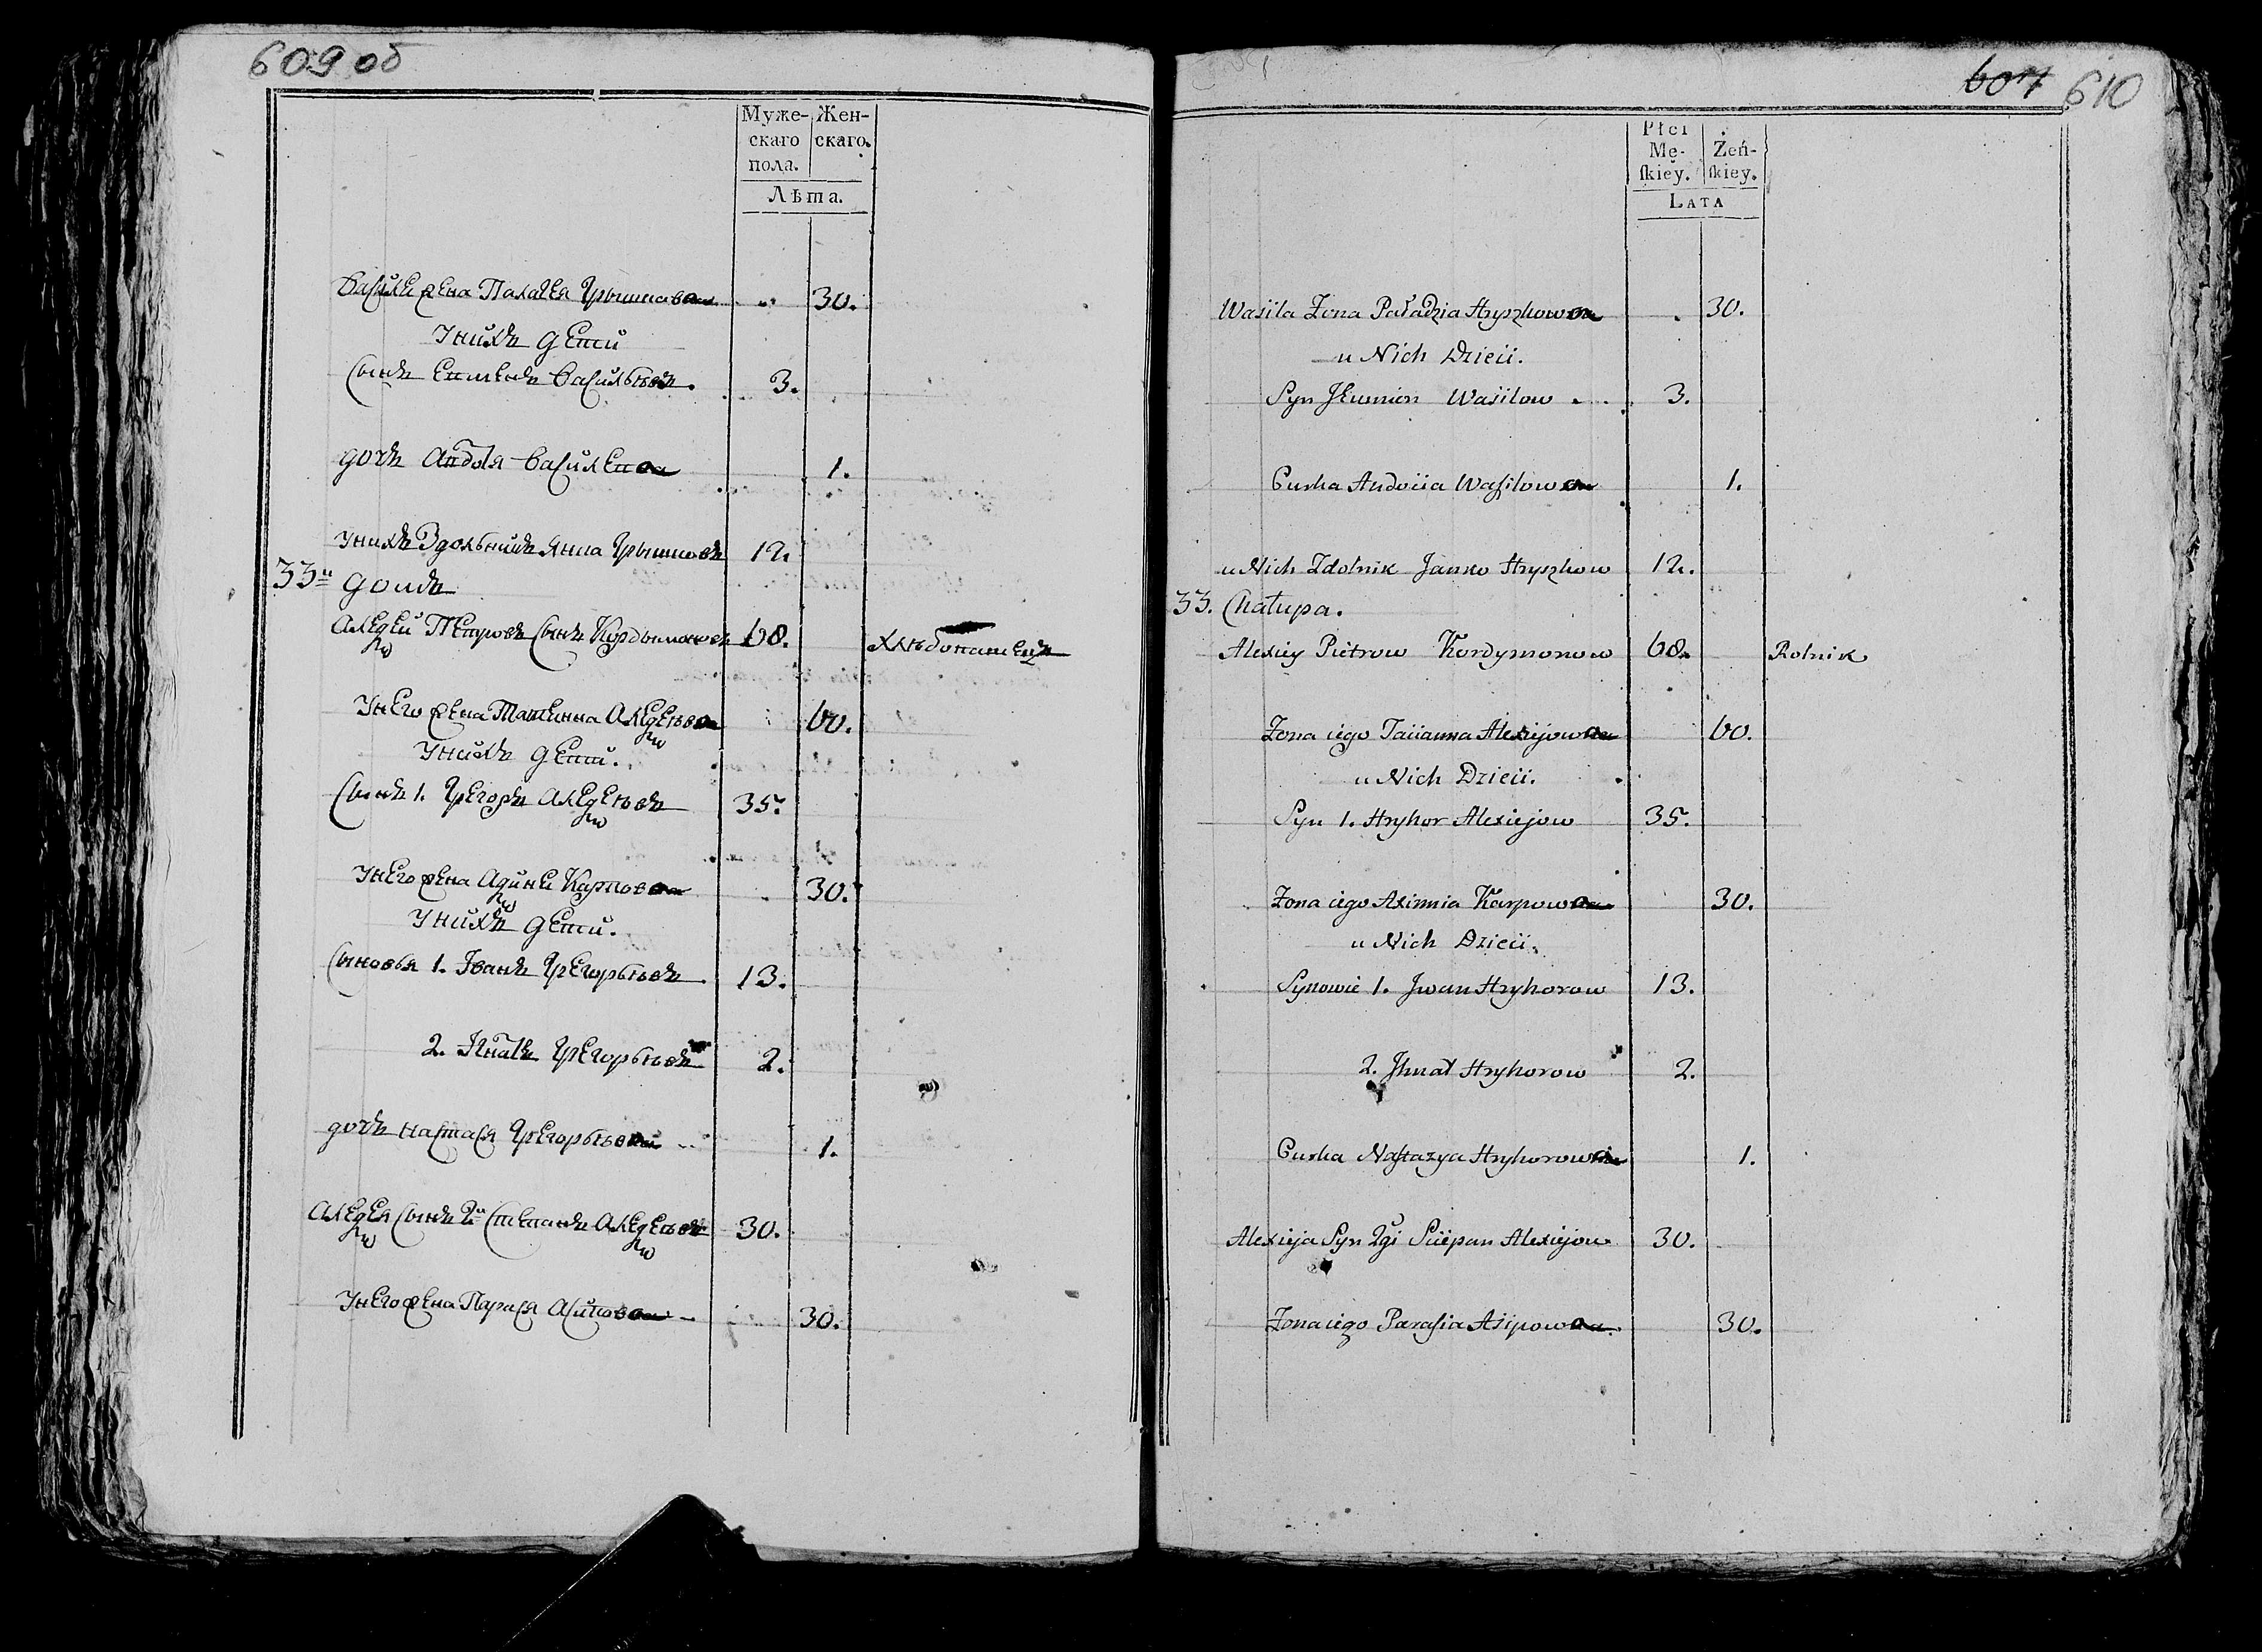 609 об
Муже- Жен-
скаго скаго.
пола.
Лѣта.
Василя жена Палагея Грышкова 30.
У нихъ дети
Сынъ Васильевъ. 3.
дочь Авдотя Василева 1.
У нихъ Здольникъ Янка Грышковъ 12.
33й домъ
Алексей Петровъ Сынъ Кордымоновъ 68. Хлѣбопашецъ
У него жена Татиянна Алексеева 60.
У нихъ дети.
Сынъ 1. Грегоръ Алексеевъ 35.
У него жена Карпова 30.
У нихъ дети.
Сыновья 1. Иванъ Грегорьевъ 13.
2. Игнатъ Грегорьевъ 2.
дочь Настася Грегорьева 1.
Алексея Сынъ 2й Степанъ Алексеевъ 30.
У него жена Парася Асипова 30.
607 610
Płci
Mę- Żeń-
skiey. skiey.
LATA
Wasila Żona Paładzia Hryszkowa 30.
u Nich Dzieci.
Syn Wasilow 3.
Curka Audocia Wasilowa 1.
u Nich Zdolnik Janko Hryszkow 12.
33. Chałupa.
Alexiey Pietrow Kordymonow 68. Rolnik
Żona iego Tacianna Alexiejowa 60.
u Nich Dzieci.
Syn 1. Hryhor Alexiejow 35.
Żona iego Aximia Karpowa 30.
u Nich Dzieci.
Synowie 1. Jwan Hryhorow 13.
2. Jhnat Hryhorow 2.
Curka Nastazya Hryhorowa 1.
Alexieja Syn 2gi Sciepan Alexiejow 30.
Żona iego Parasia Asipowa. 30.